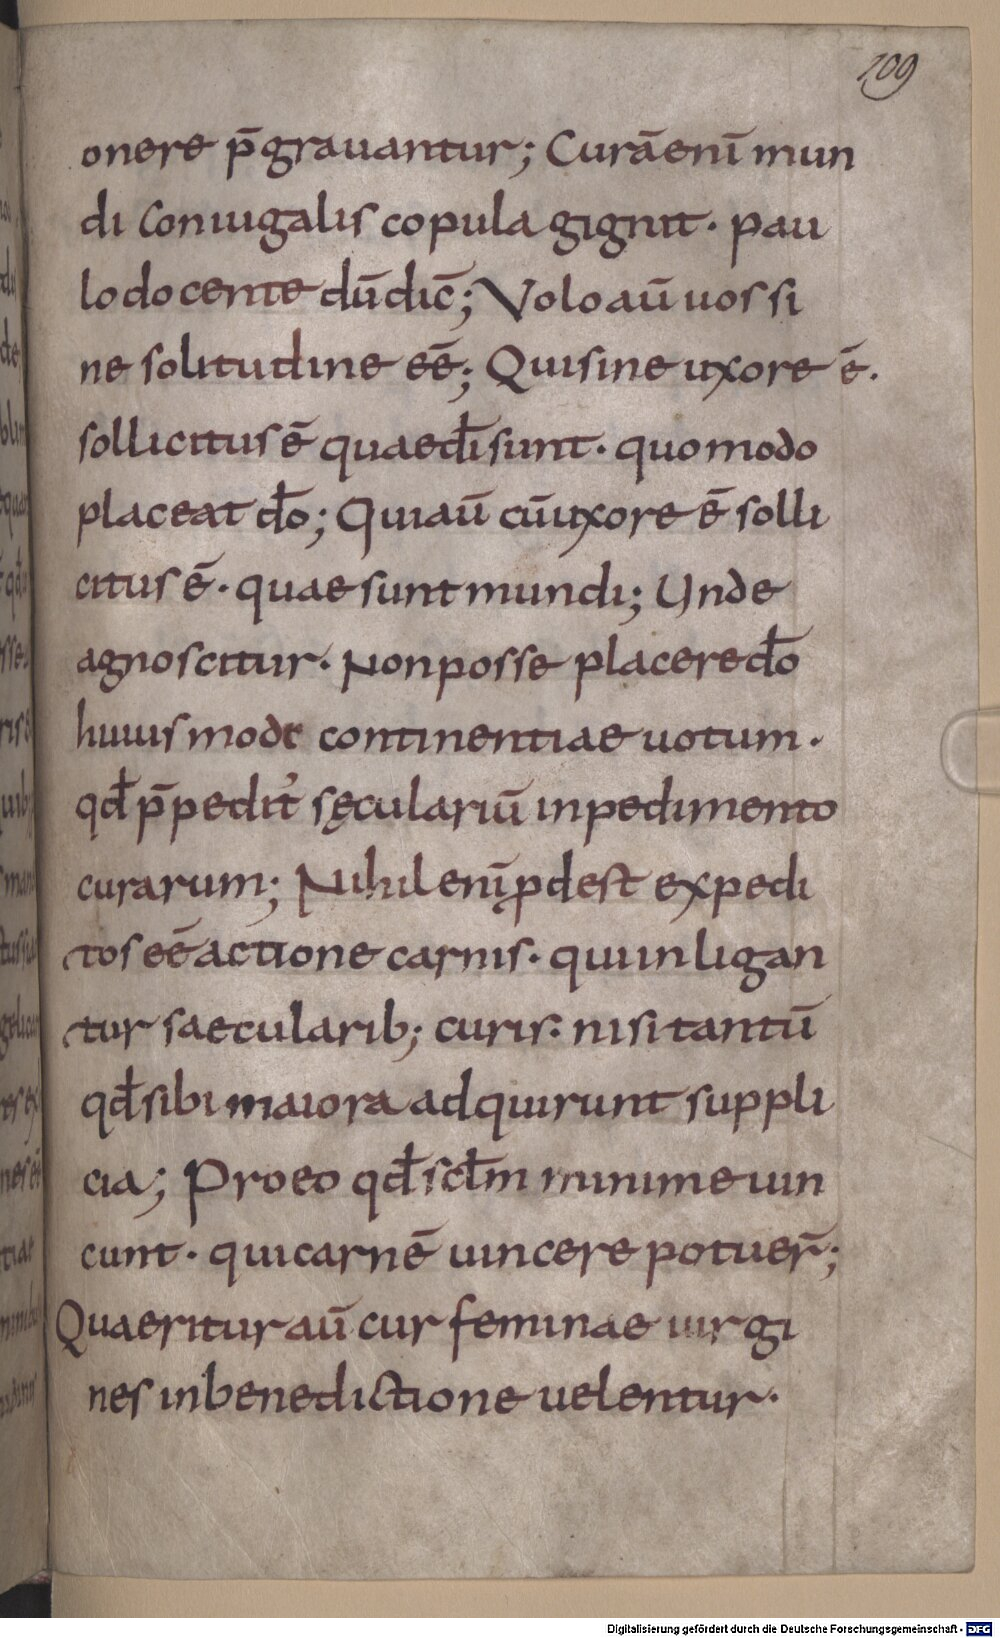 109
onere p̄grauantur; Curā enī mun
di Coniugalis copula gignit · pau
lo docente dū dic̄; Volo aū uos si
ne solitudine eē; Qui sine uxore ē ·
sollicitus ē quae dī sunt · quomodo
placeat dō; Qui aū cū uxore ē solli
citus ē · quae sunt mundi; Unde
agnoscitur · Non posse placere dō
huiusmodi continentiae uotum ·
qđ p̄pedit᾽ sęculariū inpedimento
curarum; Nihil enī ꝓdest expedi
tos eē actione carnis · qui inligan
tur saecularib; curis · nisi tantū
qđ sibi maiora adquirunt suppli
cia; Pro eo qđ scl̄m minime uin
cunt · qui carnē uincere potuer̄;
Quaeritur aū cur feminae uirgi
nes in benedictione uelentur ·
Digitalisierung gefördert durch die Deutsche Forschungsgemeinschaft - DFG